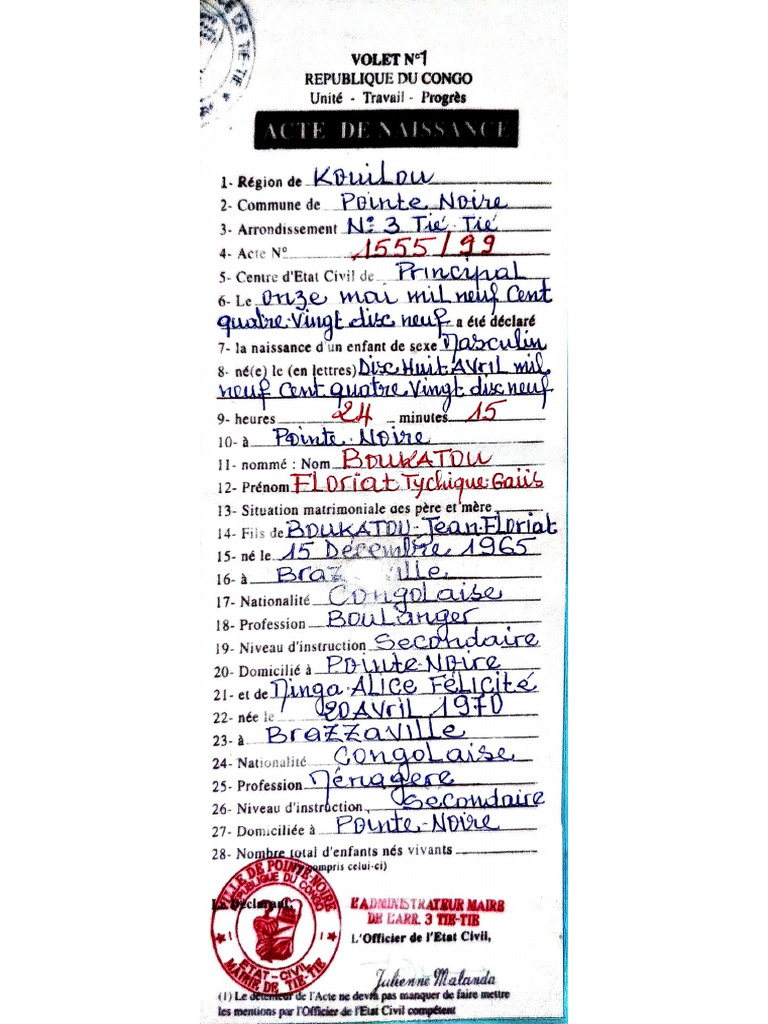 DE TIE-TIE
VOLET N°1
REPUBLIQUE DU CONGO
Unité - Travail - Progrès
ACTE DE NAISSANCE
1- Région de Kouilou
2- Commune de Pointe Noire
3- Arrondissement N° 3 Tié-Tié
4- Acte N° 1555/99
5- Centre d'Etat Civil de Principal
6- Le onze mai mil neuf cent
quatre-vingt disc neuf a été déclaré
7- la naissance d'un enfant de sexe Masculin
8- né(e) le (en lettres) Disc Huit Avril mil
neuf cent quatre Vingt disc neuf
9- heures 24 minutes 15
10- à Pointe-Noire
11- nommé : Nom BOUKATOU
12- Prénom FLoriat Tychique Gaüs
13- Situation matrimoniale des père et mère
14- Fils de BOUKATOU-Jean-Floriat
15- né le 15 Décembre 1965
16- à Braz ille
17- Nationalité Congolaise
18- Profession Boulanger
19- Niveau d'instruction Secondaire
20- Domicilié à Pointe-Noire
21- et de Ninga-ALICE FéLICITé
22- née le 20 Avril 1970
23- à Brazzaville
24- Nationalité Congolaise
25- Profession Ménagère
26- Niveau d'instruction Secondaire
27- Domiciliée à Pointe-Noire
28- Nombre total d'enfants nés vivants
(y compris celui-ci)
VILLE DE POINTE-NOIRE
REPUBLIQUE DU CONGO
Le Déclarant,
ETAT-CIVIL
MAIRIE DE TIE-TIE
L'ADMINISTRATEUR MAIRE
DE L'ARR. 3 TIE-TIE
L'Officier de l'Etat Civil,
Julienne Malanda
(1) Le détenteur de l'Acte ne devra pas manquer de faire mettre
les mentions par l'Officier de l'Etat Civil compétent